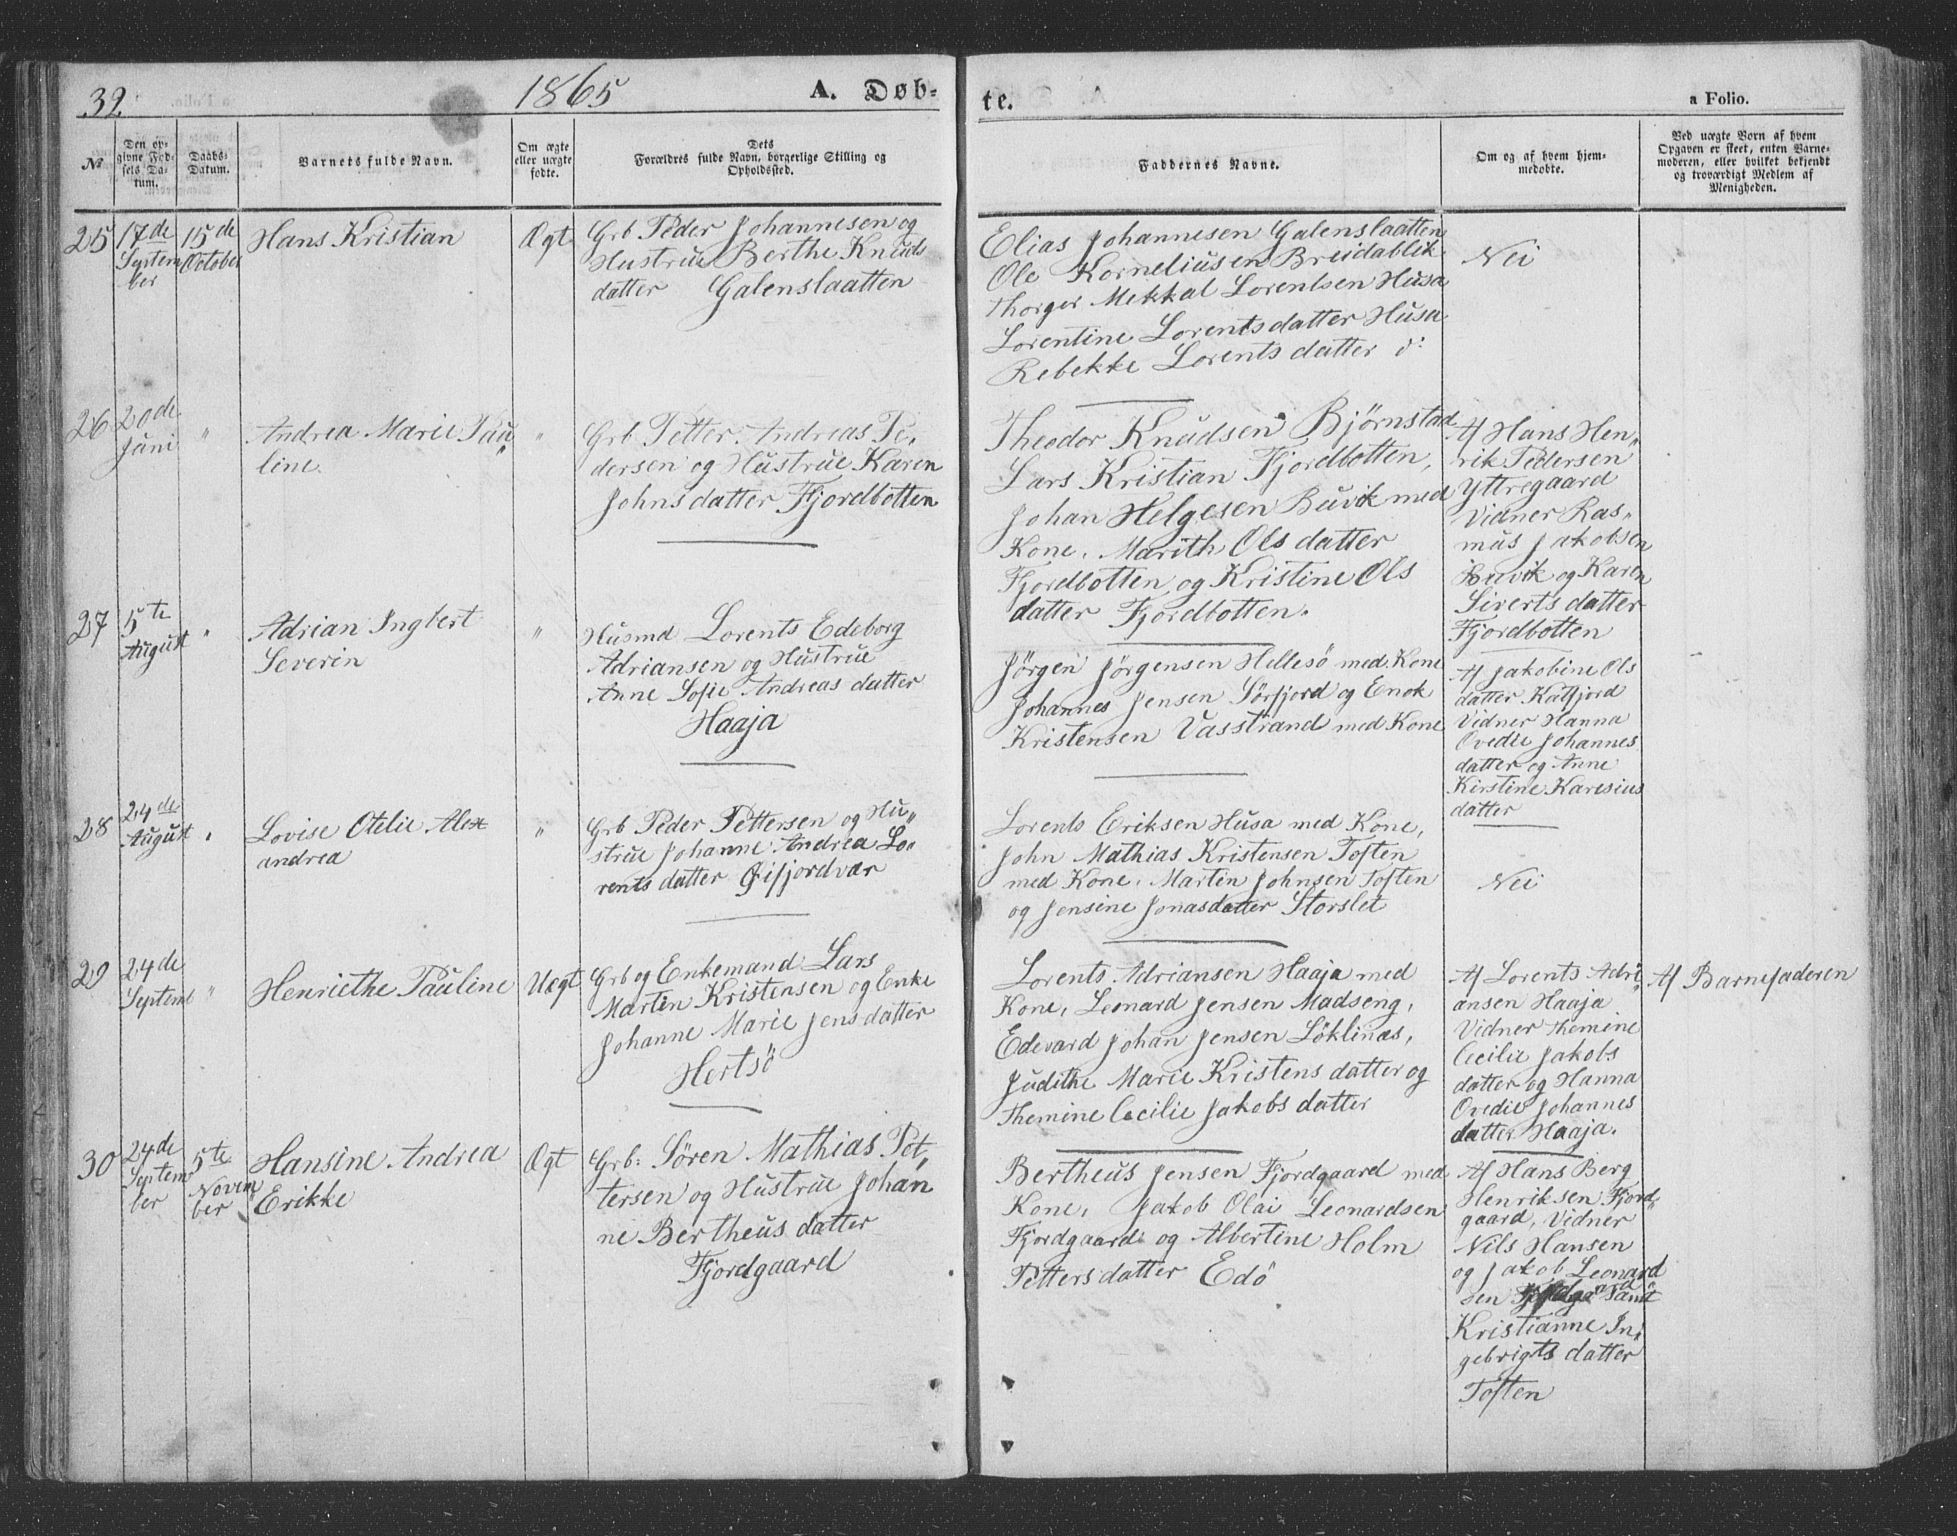 32.
1865
A. Døb-
te.
a Folio.
№
Den op-
givne Fød-
sels Da-
tum.
Daabs-
Datum.
Barnets fulde Navn.
Om ægte
eller uægte
fødte.
Dets
Forældres fulde Navn, borgerlige Stilling og
Opholdssted.
Faddernes Navne.
Om og af hvem hjem-
medøbte.
Ved uægte Born af hvem
Opgaven er skeet, enten Barne-
moderen, eller hvilket bekjendt
og troværdigt Medlem af
Menigheden.
25
17de
Septem
ber
15de
October
Hans Kristian
Ægt
Grb Peder Johannesen og
Hustrue Berthe Knuds
datter Galenslaatten
Elias Johannesen Galenslaatten
Ole Korneliusen Breidablik
Thorger Mekkal Lorentsen Husa
Lorentine Lorentsdatter Husa
Rebekke Lorents datter d:
Nei
26
20de
Juni
"
Andrea Marie Pau„
line.
"
Grb Petter Andreas Pe,
dersen og Hustrue Karen
Johnsdatter Fjordbotten
Theodor Knudsen Bjørnstad
Lars Kristian Fjordbotten,
Johan Helgesen Buvik med
Kone, Marith Ols datter
Fjordbotten og Kristine Ols
datter Fjordbotten.
Af Hans Hen„
rik Pedersen
Yttregaard
Vidner Ras„
mus Jakobsen
Buvik og Karen
Siverts datter
Fjordbotten
27
5te
August
"
Adrian Ingbert
Severin
"
Husmd Lorents Edeborg
Adriansen og Hustrue
Anne Sofie Andreas datter
Haaja
Jørgen Jørgensen Hellesö med Kone
Johannes Jensen Sörfjord og Enok
Kristensen Vasstrand med Kone
Af Jakobine Ols
datter Katfjord
Vidner Hanna
Ovedie Johannes
datter og Anne
Kirstine Karesius
datter
28
24de
August
"
Lovise Otelie Alex
andrea
"
Grb Peder Pettersen og Hu„
strue Johanne Andrea Lo„
rents datter Øifjordvær
Lorents Eriksen Husa med Kone,
John Mathias Kristensen Toften
med Kone, Martin Johnsen Toften
og Jensine Jonasdatter Storslet
Nei
29
24de
Septem
"
Henriethe Pauline
Uegt
Grb og Enkemand Lars
Martin Kristensen og Enke
Johanne Marie Jens datter
Hertsö
Lorents Adriansen Haaja med
Kone, Leonard Jensen Madseng,
Edevard Johan Jensen Löklinæs,
Judithe Marie Kristens datter og
Themine Cecilie Jakobs datter
Af Lorents Adri„
ansen Haaja
Vidner Themine
Cecilie Jakobs
datter og Hanna
Ovedie Johannes
datter Haaja.
Af Barnefaderen
30
24de
Septem
ber
5te
Novem
ber
Hansine Andrea
Erikke
Ægt
Grb: Sören Mathias Pet„
tersen og Hustrue Johan„
ne Bertheus datter
Fjordgaard
Bertheus Jensen Fjordgaard med
Kone, Jakob Olai Leonardsen
Fjordgaard og Albertine Holm
Petters datter Edö
Af Hans Berg
Henriksen Fjord„
gaard, Vidner
Nils Hansen
og Jakob Leonard
sen Fjordgaard samt
Kristianne In„
gebrigts datter
Toften